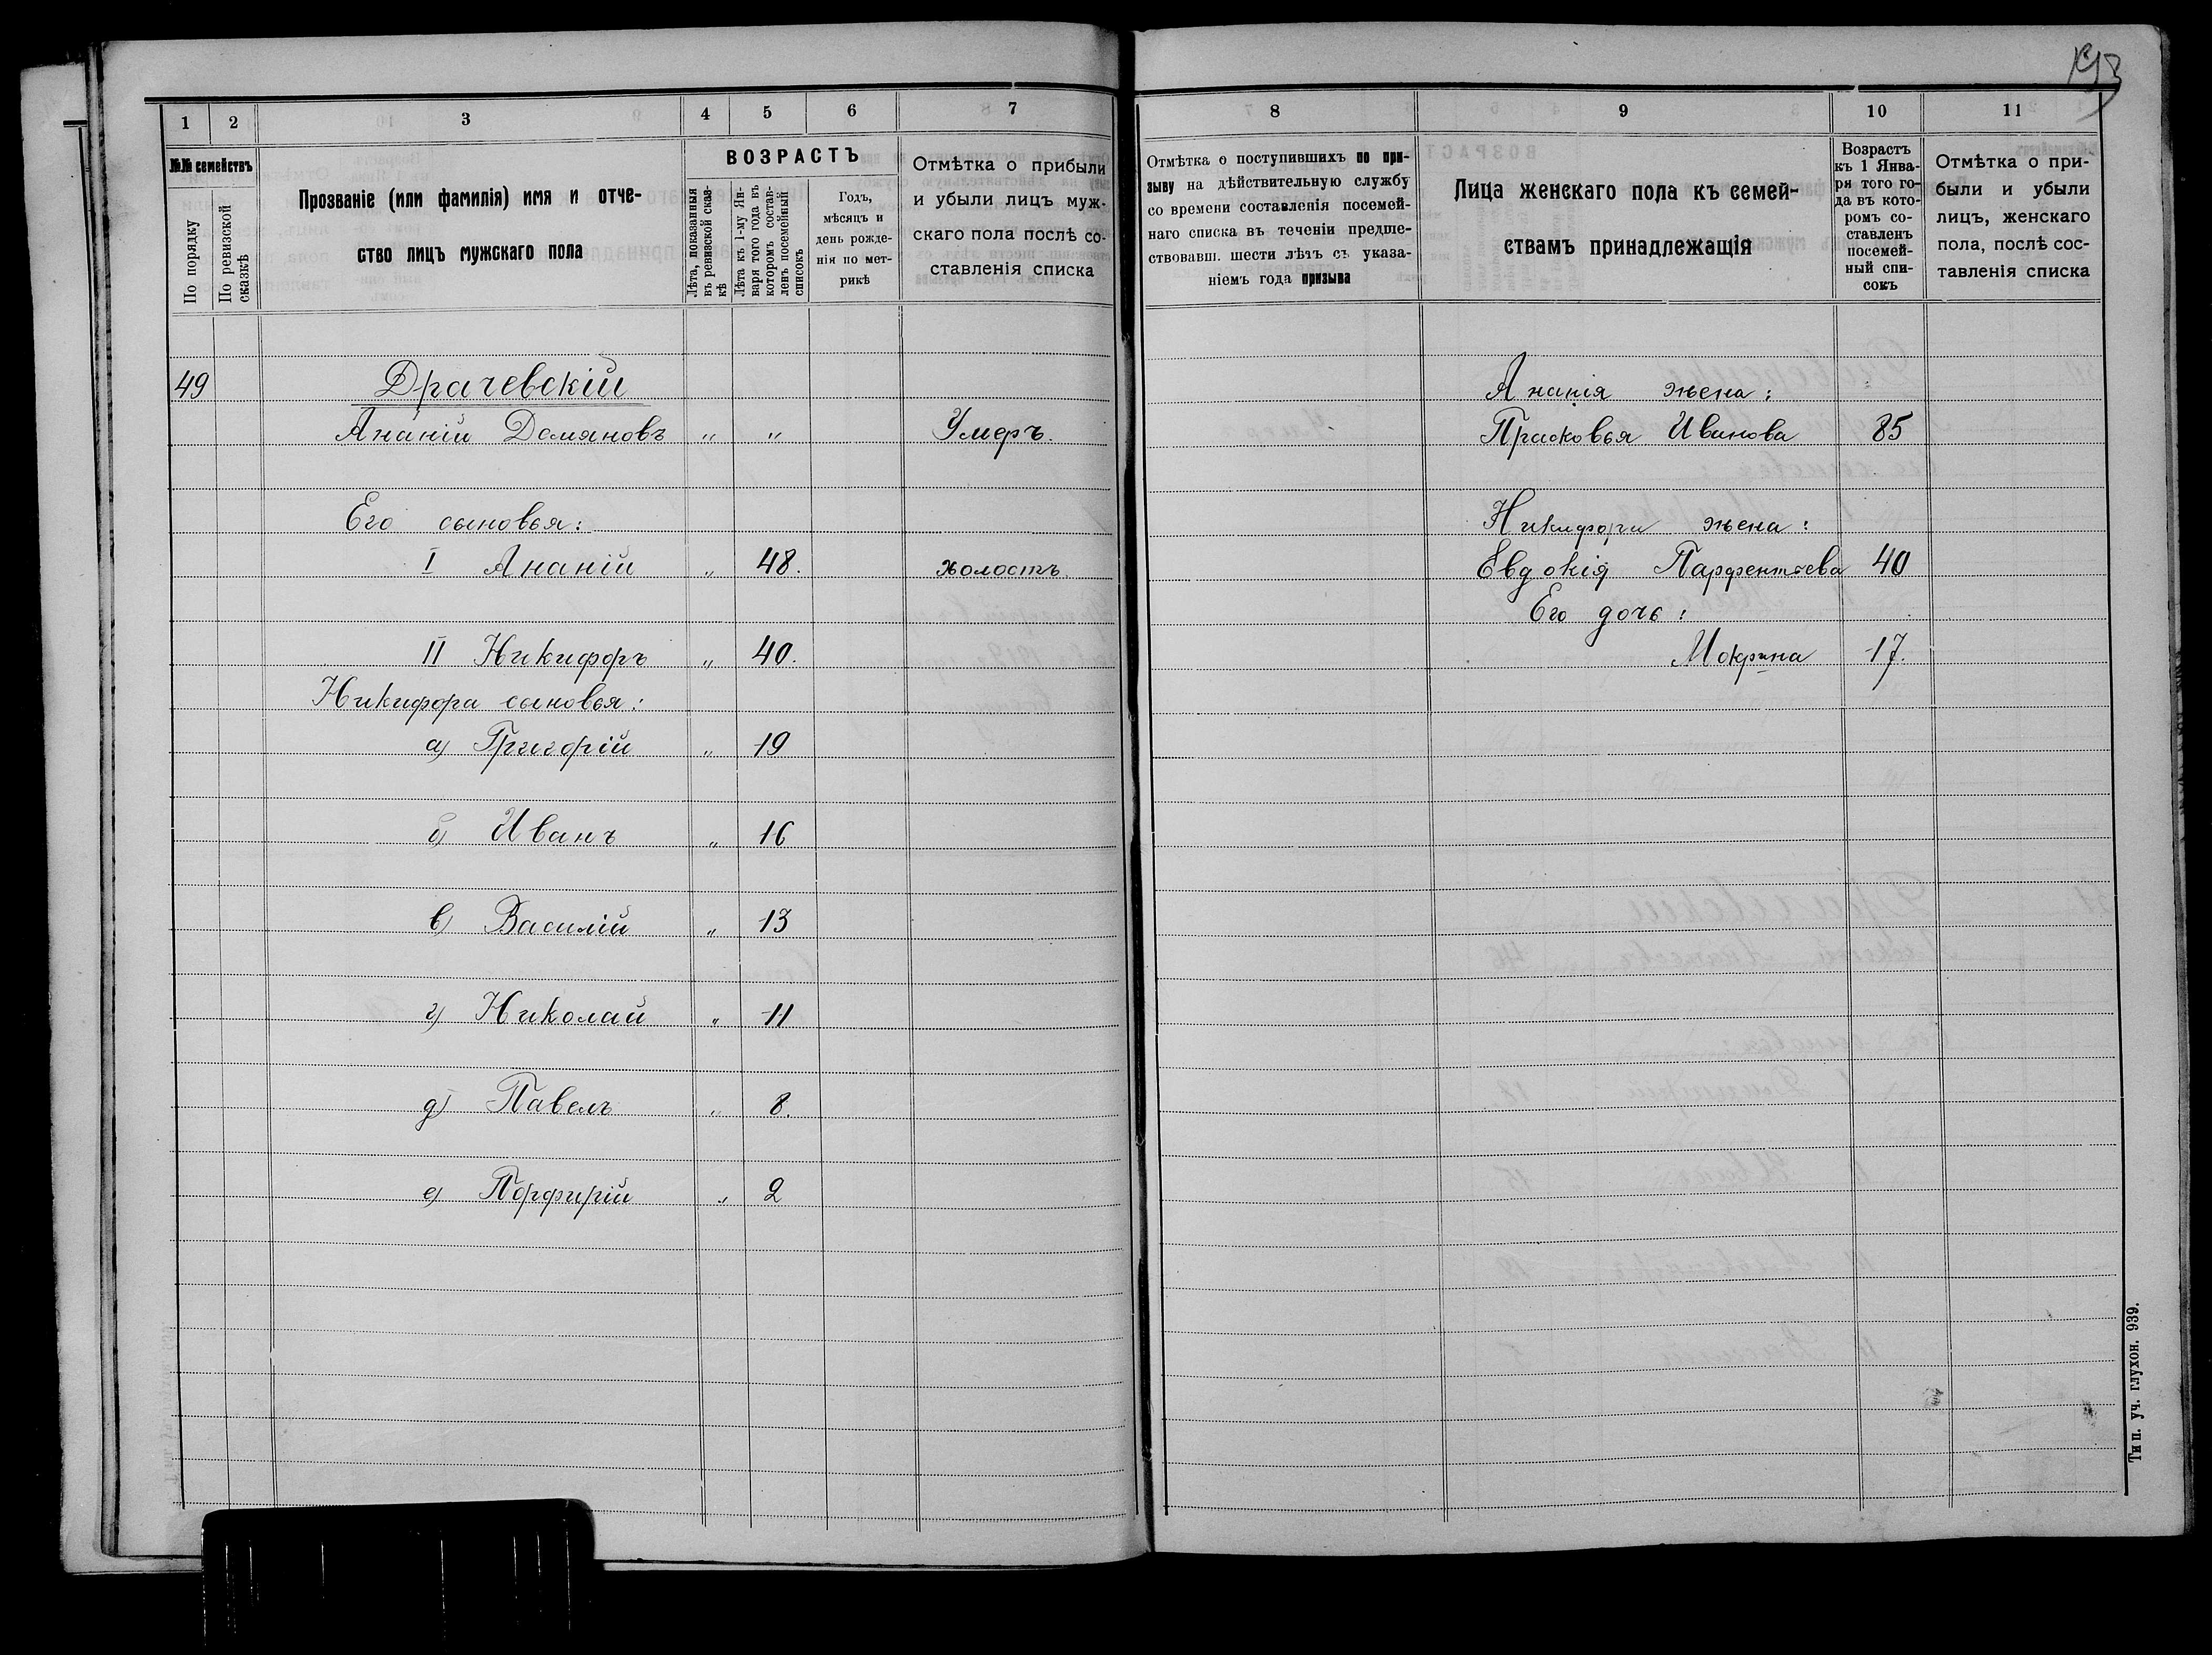 1 2 3 4 5 6 7
№№ семействъ
По порядку
По ревизской сказкѣ
Прозваніе (или фамилія) имя и отче-
ство лицъ мужскаго пола
ВОЗРАСТЪ
Лѣта, показанныя въ ревизской сказ-кѣ
Лѣта къ 1-му Ян-варя того года въ которомъ состав-ленъ посемейный списокъ
Годъ,
мѣсяцъ и
день рожде-
нія по мет-
рикѣ
Отмѣтка о прибыли
и убыли лицъ муж-
скаго пола послѣ со-
ставленія списка
49 Драчевскій
Ананій Демяновъ " " Умеръ.
Его сыновья:
I Ананій " 48. холостъ.
II Никифоръ " 40.
Никифора сыновья:
а) Григорій " 19
б) Иванъ " 16
в) Василій " 13
г) Николай " 11
д) Павелъ " 8.
е) Порфирій " 2
8 9 10 11
Отмѣтка о поступившихъ по при-
зыву на дѣйствительную службу
со времени составленія посемей-
наго списка въ теченіи предше-
ствовавш. шести лѣтъ съ указа-
ніемъ года призыва
Лица женскаго пола къ семей-
ствамъ принадлежащія
Возрастъ
къ 1 Янва-
ря того го-
да въ кото-
ромъ со-
ставленъ
посемей-
ный спи-
сокъ
Отмѣтка о при-
были и убыли
лицъ, женскаго
пола, послѣ сос-
тавленія списка
Ананія жена:
Прасковья Иванова 85
Никифора жена:
Евдокія Парфентьева 40
Его дочь:
Мокрина 17.
Тип. уч. глухон. 939.